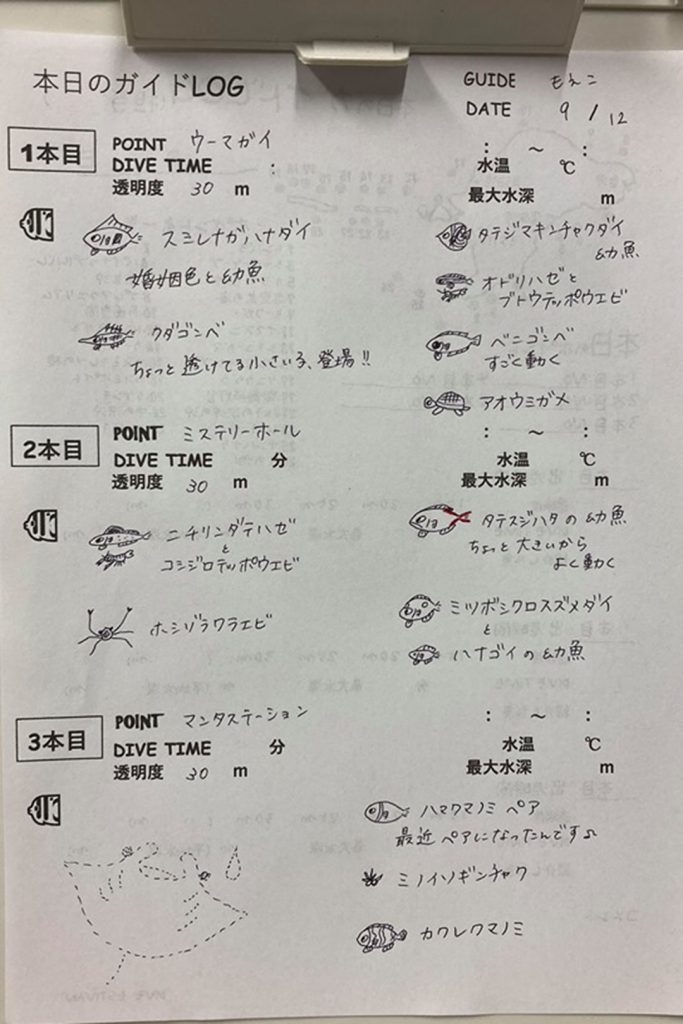 本日のガイドLOG
GUIDE もえこ
DATE 9 / 12
1本目
POINT ウーマガイ
DIVE TIME :
透明度 30 m
: ～ :
水温 ℃
最大水深 m
スミレナガハナダイ
婚姻色と幼魚
クダゴンベ
ちょっと透けてる小さい子、登場!!
タテジマキンチャクダイ
幼魚
オドリハゼと
ブドウテッポウエビ
ベニゴンベ
すごく動く
アオウミガメ
2本目
POINT ミステリーホール
DIVE TIME 分
透明度 30 m
: ～ :
水温 ℃
最大水深 m
ニチリンダテハゼ
と
コシジロテッポウエビ
ホシゾラワラエビ
タテスジハタの幼魚
ちょっと大きいから
よく動く
ミツボシクロスズメダイ
と
ハナゴイの幼魚
3本目
POINT マンタステーション
DIVE TIME 分
透明度 30 m
: ～ :
水温 ℃
最大水深 m
ハマクマノミ ペア
最近ペアになったんです♪
ミノイソギンチャク
カクレクマノミ